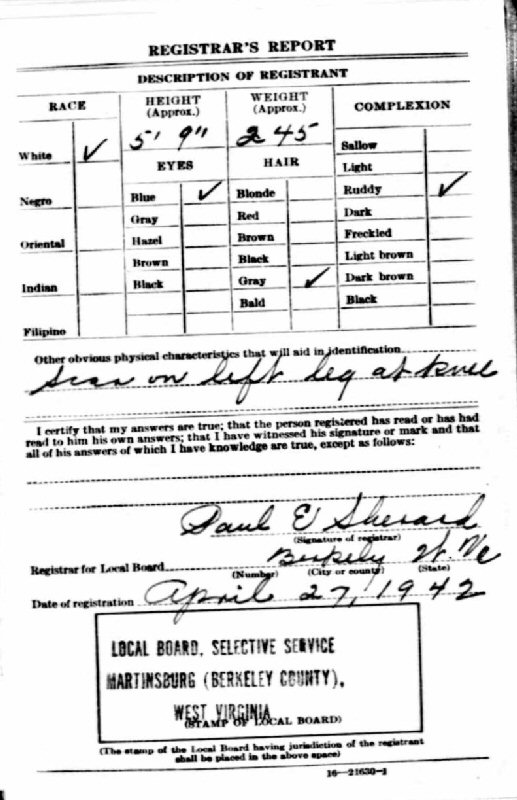 REGISTRAR'S REPORT
DESCRIPTION OF REGISTRANT
RACE
HEIGHT (Approx.)
WEIGHT (Approx.)
COMPLEXION
5' 9"
245
White ✓
EYES
HAIR
Sallow
Light
Negro
Blue ✓
Blonde
Ruddy ✓
Gray
Red
Dark
Oriental
Hazel
Brown
Freckled
Brown
Black
Light brown
Indian
Black
Gray ✓
Dark brown
Bald
Black
Filipino
Other obvious physical characteristics that will aid in identification
Scar on left leg at knee
I certify that my answers are true; that the person registered has read or has had
read to him his own answers; that I have witnessed his signature or mark and that
all of his answers of which I have knowledge are true, except as follows:
Paul E Sherard
(Signature of registrar)
Registrar for Local Board Berkely W. Va
(Number) (City or county) (State)
Date of registration April 27, 1942
LOCAL BOARD, SELECTIVE SERVICE
MARTINSBURG (BERKELEY COUNTY),
WEST VIRGINIA
(STAMP OF LOCAL BOARD)
(The stamp of the Local Board having jurisdiction of the registrant
shall be placed in the above space)
16—21630-1